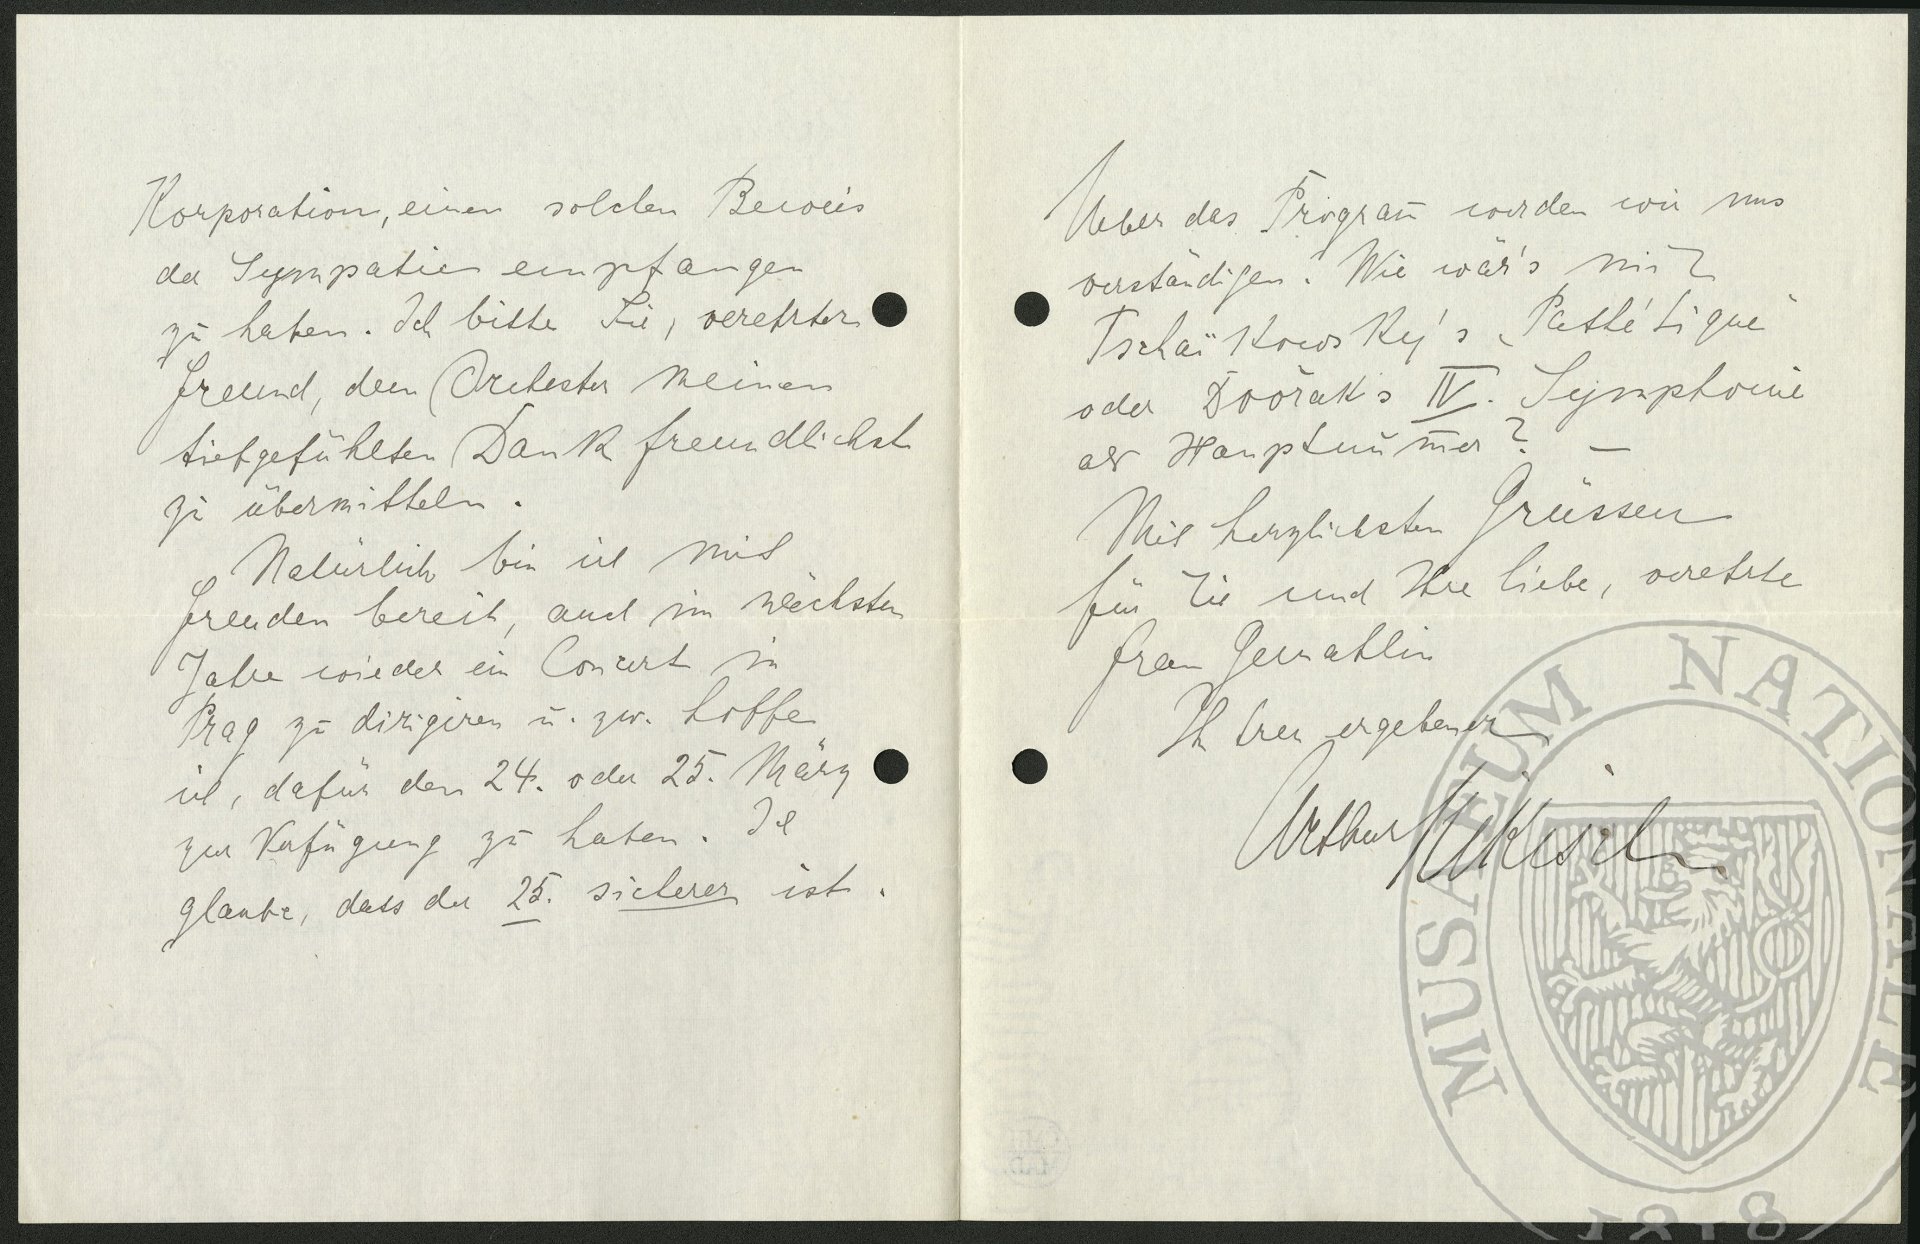 Korporation, einen solchen Beweis
der Sympatien empfangen
zu haben. Ich bitte Sie, verehrter
Freund, dem Orchester meinen
tiefgefühlten Dank freundlichst
zu übermitteln.
Natürlich bin ich mit
Freuden bereit, auch im nächsten
Jahre wieder ein Concert in
Prag zu dirigiren u. zw. hoffe
ich, dafür den 24. oder 25. März
zur Verfügung zu haben. Ich
glaube, dass der 25. sicherer ist.
Ueber das Program̅ werden wir uns
verständigen. Wie wär's mit
Tschaïkowsky's „Pathétique"
oder Dvořák's IV. Symphonie
als Hauptnum̅er? —
Mit herzlichsten Grüssen
für Sie und Ihre liebe, verehrte
Frau Gemahlin
Ihr treu ergebener
Arthur Nikisch
MUSAEUM NATIONALE
1818